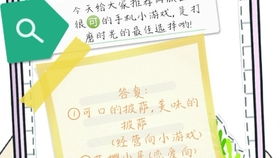 今天给大家推荐
很可的手机小游戏,是打
磨时光的最佳选择哟!
答复:
①可口的披萨,美味的
披萨
(经营向小游戏)